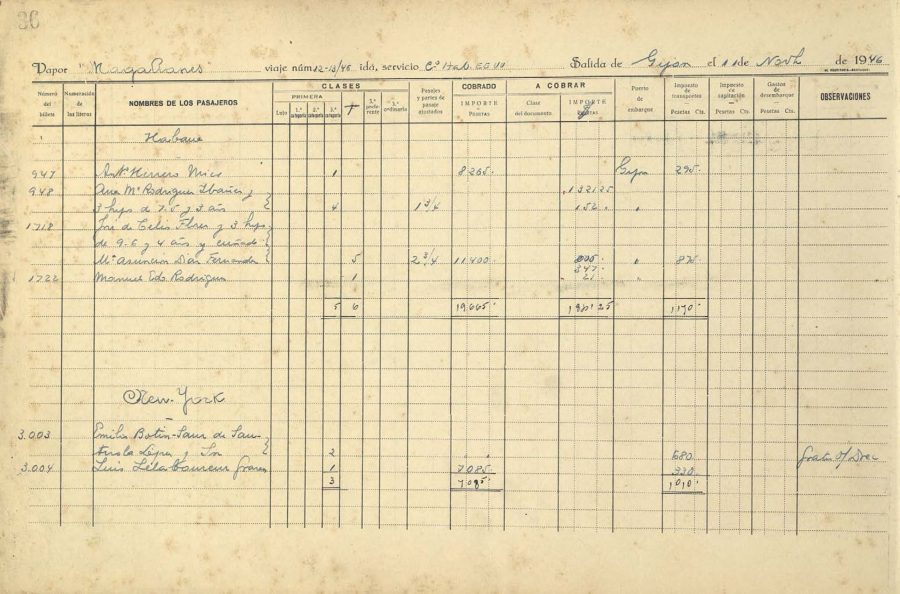 36
Vapor "Magallanes viaje núm. 12-13/46 ida, servicio Cº Hab. EE UU Salida de Gijón el 11 de Novb de 1946
Número del billete
Numeración de las literas
NOMBRES DE LOS PASAJEROS
CLASES
PRIMERA
Lujo 1.ª 2.ª 3.ª
3.ª preferente 3.ª ordinaria
Pasajes y partes de pasaje ajustados
COBRADO
IMPORTE
PESETAS
A COBRAR
Clase del documento
IMPORTE
PESETAS
Puerto de embarque
Impuesto de transportes
Pesetas Cts.
Impuesto de capitación
Pesetas Cts.
Gastos de desembarque
Pesetas Cts.
OBSERVACIONES
Habana
947 Antº Herrero 1 8.265 Gijón 295
948 Ana Mª Rodriguez Ibañez y 132125
3 hijos de 7.5 y 3 años 4 1 3/4 156 "
1718 José de Celis Flores y 3 hijos
de 9.6 y 4 años y cuñada
Mª Asuncion Diaz Fernandez 5 2 3/4 11.400 " 875
547
1722 Manuel Edo Rodriguez 1 "
5 6 19.665 1170
New-York
3.003 Emilia Botin-Sanz de Sau-
tuola López y 2 680 Gratis
3.004 Luis 1 7085 330
3 7085 1010